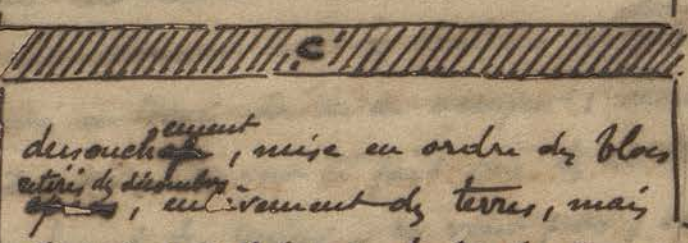 C
dessouchement, mise en ordre des blocs
retirés des décombres, enlèvement des terres, mais